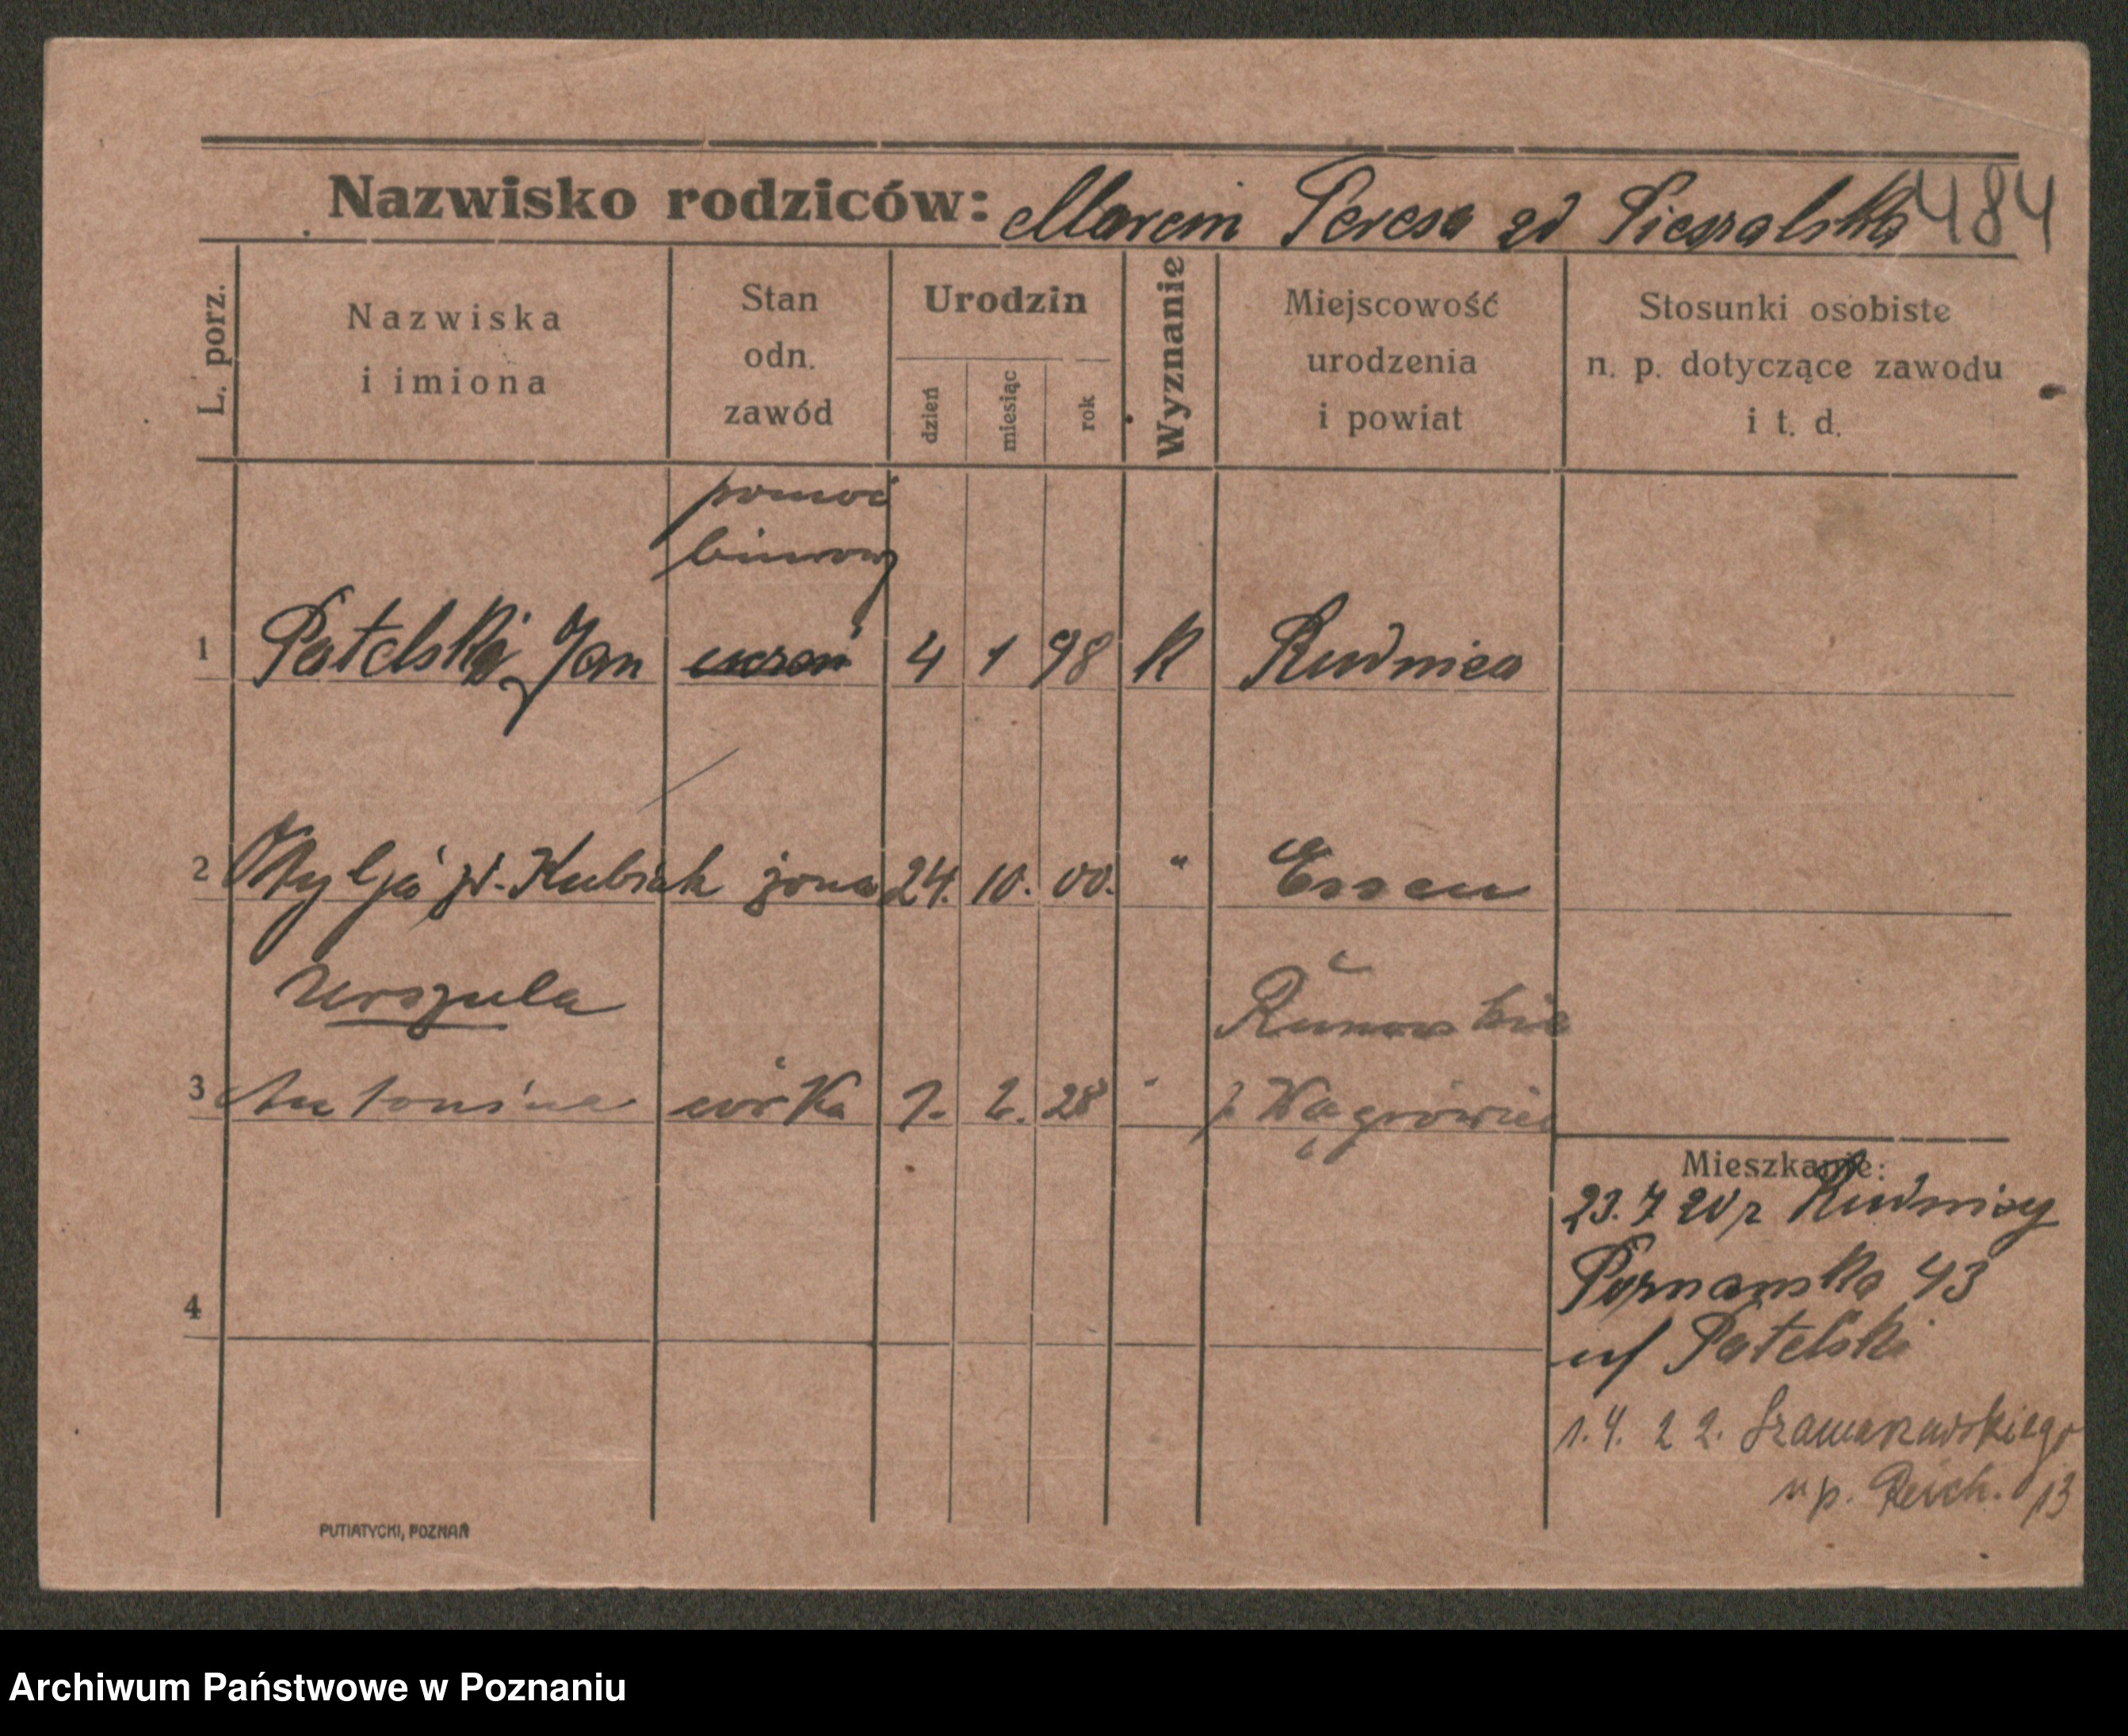 Nazwisko rodziców: Marcin Teresa zd Piegzalska 484
L. porz.
Nazwiska
i imiona
Stan
odn.
zawód
Urodzin
dzień
miesiąc
rok
Wyznanie
Miejscowość
urodzenia
i powiat
Stosunki osobiste
n. p. dotyczące zawodu
i t. d.
pomoc
biurowy
1 Patelski Jan uczeń 4 1 98 K Rudnica
2 Otylja zd. Kubiak żona 24. 10. 00. " Essen
Urszula Runowskie
3 Antonina córka 7. 2. 28 " p Wągrówiec
Mieszkanie:
23.7 20 z Rudnicy
4 Poznańska 43
u/ Patelski
1.4. 22. Szamarzewskiego
u p. Reich. 13
PUTIATYCKI, POZNAŃ
Archiwum Państwowe w Poznaniu